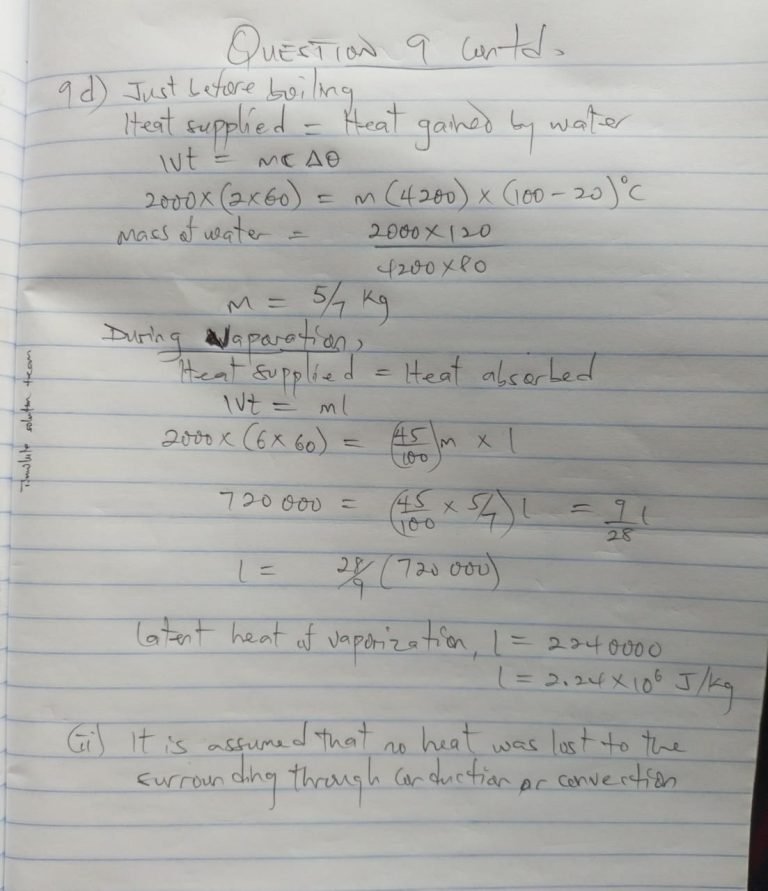 QUESTION 9 Contd.
9d) Just before boiling
Heat supplied = Heat gained by water
IVt = mcΔθ
2000×(2×60) = m(4200) × (100-20)°C
Mass of water = 2000×120 / 4200×80
M = 5/7 kg
During Vaparation,
Heat supplied = Heat absorbed
IVt = ml
2000×(6×60) = (45/100)m × l
720 000 = (45/100 × 5/7) l = 9/28 l
l = 28/9 (720 000)
Latent heat of vaporization, l = 2240000
l = 2.24×10⁶ J/kg
(ii) It is assumed that no heat was lost to the
surrounding through conduction or convection